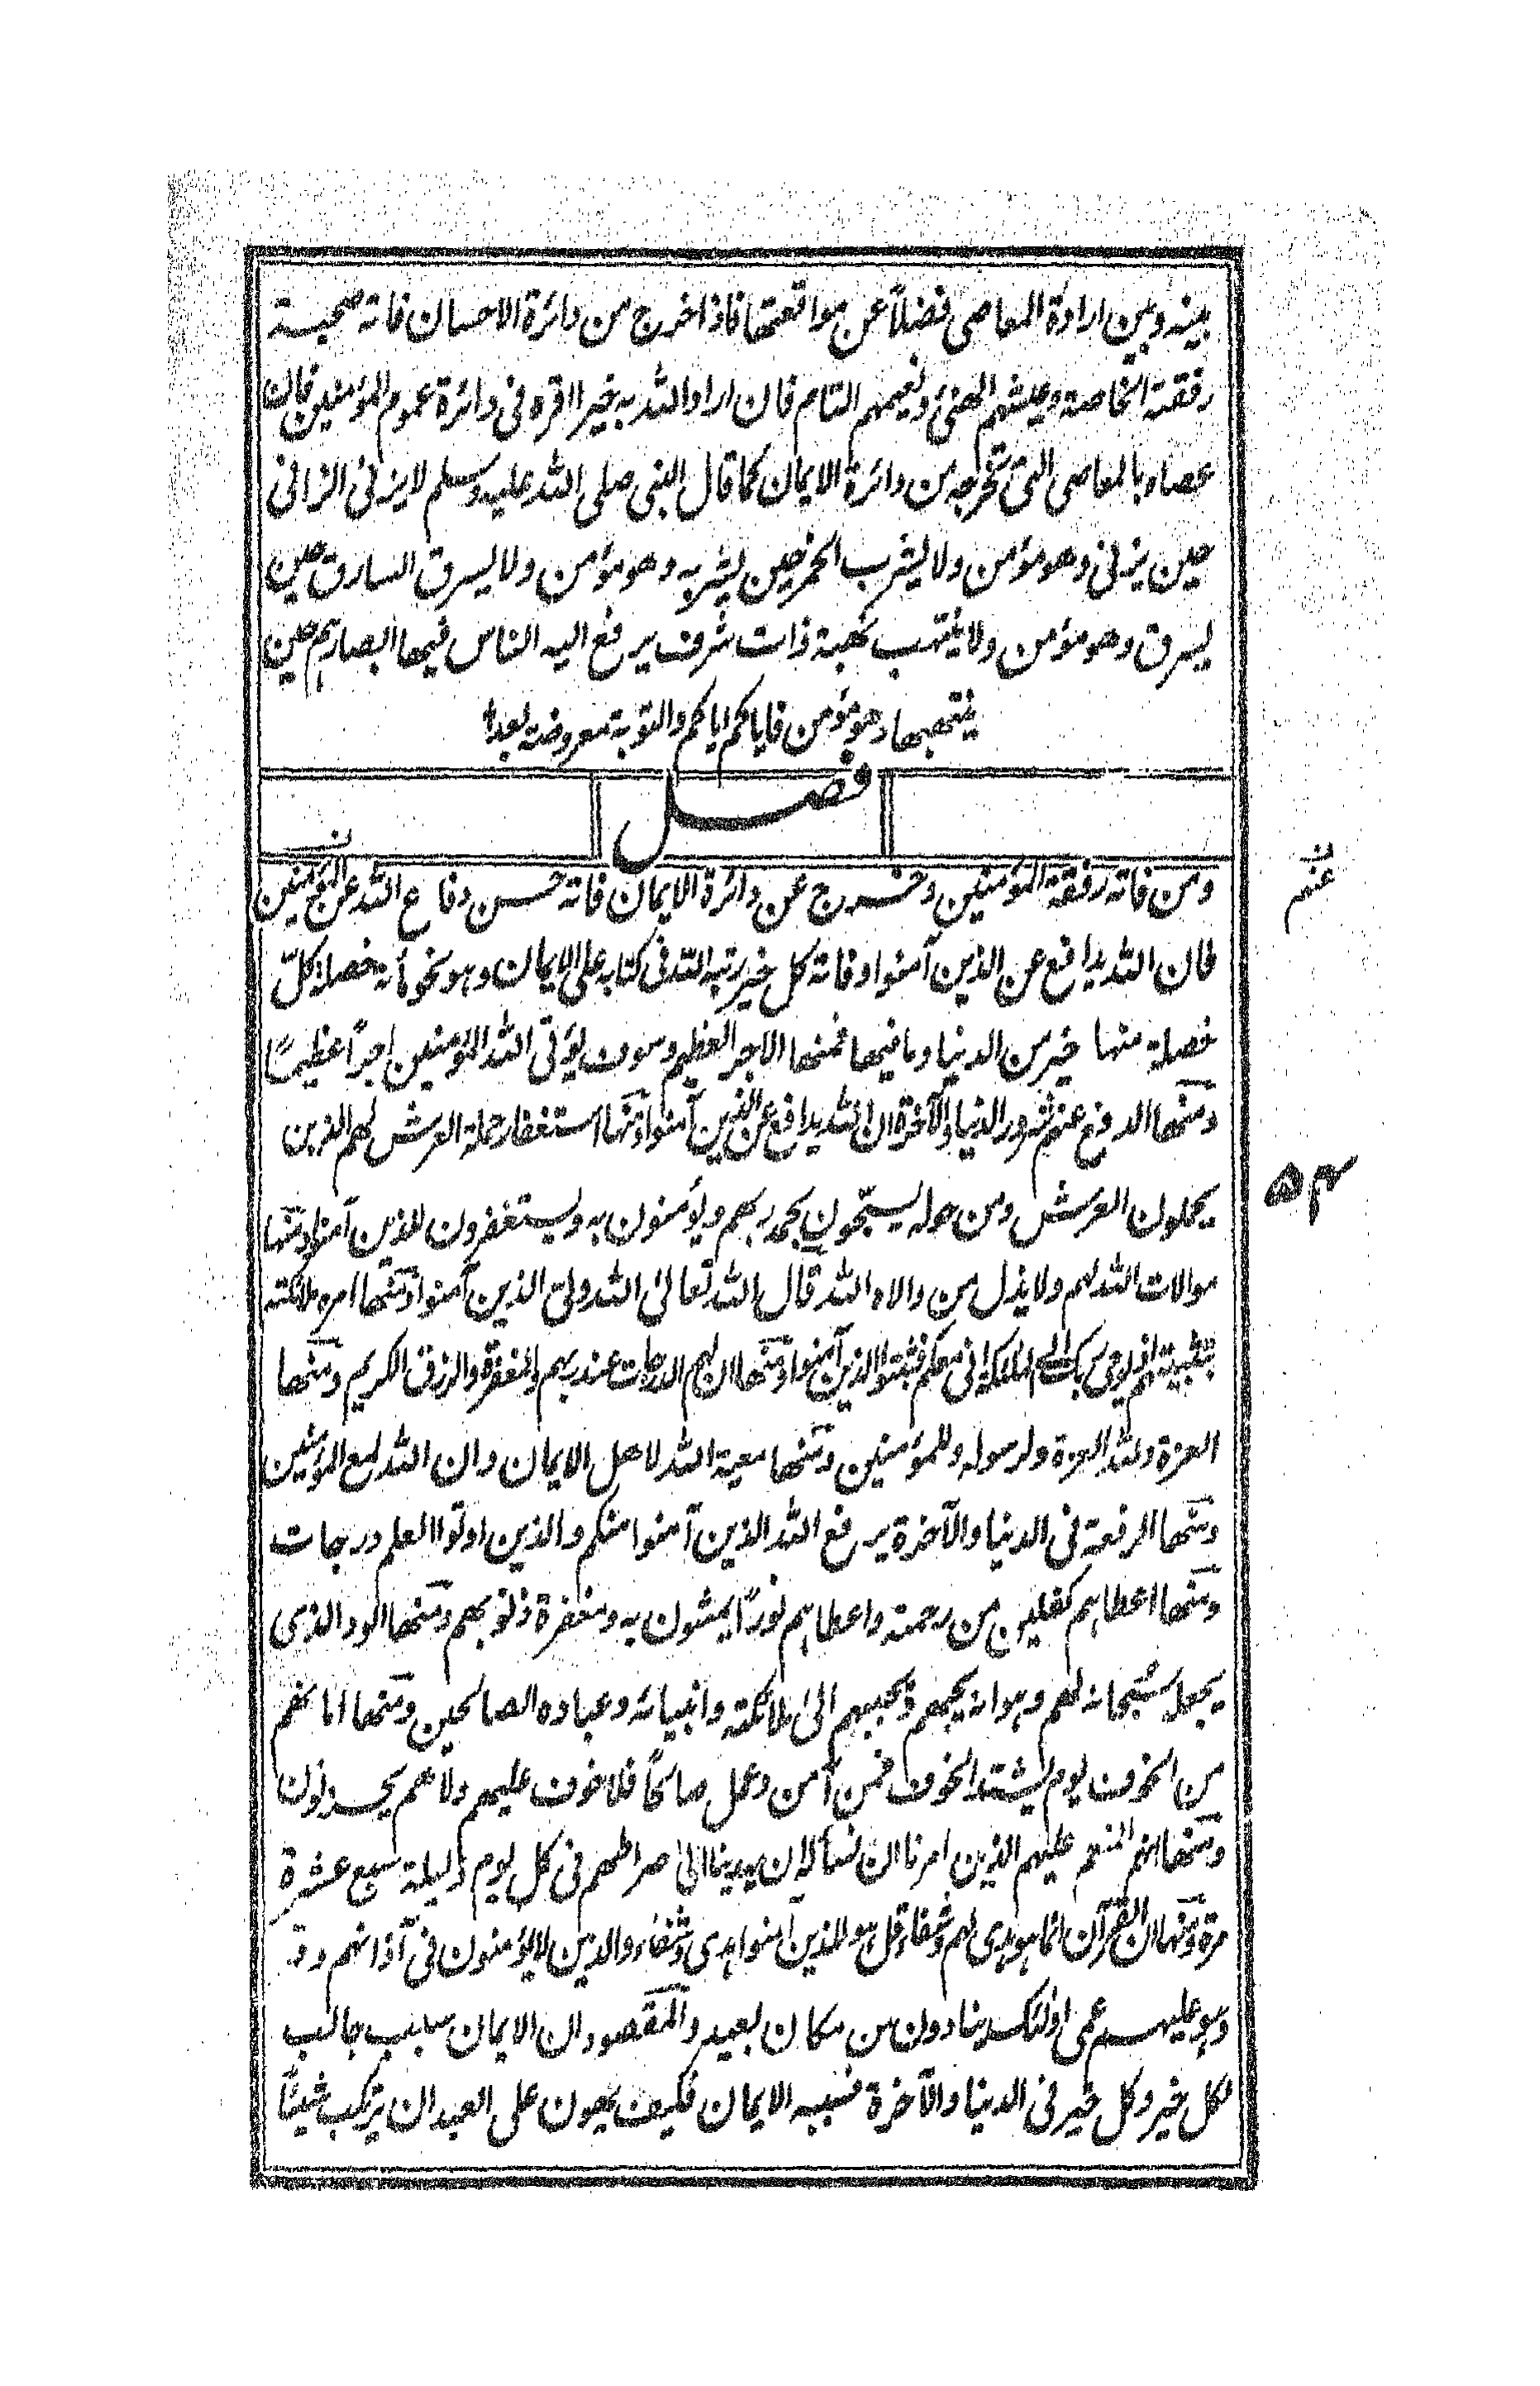 بينه وبين ارادة المعاصى فضلاً عن مواقعتها فاذا خرج من دائرة الاحسان فاته صحبة
رفقته الخاصة وعيشهم الهنئ ونعيمهم التام فان اراد الله به خيرا اقره فى دائرة عموم المؤمنين فان
عصاه بالمعاصى التى تخرجه من دائرة الايمان كما قال النبى صلى الله عليه وسلم لا يزنى الزانى
حين يزنى وهو مؤمن ولا يشرب الخمر حين يشربه وهو مؤمن ولا يسرق السارق حين
يسرق وهو مؤمن ولا ينتهب نهبة ذات شرف يرفع اليه الناس فيها ابصارهم حين
ينتهبها وهو مؤمن فاياكم اياكم والتوبة معروضة بعد
فصل
ومن فاته رفقة المؤمنين وخرج عن دائرة الايمان فاته حسن دفاع الله عن المؤمنين
عنهم
فان الله يدافع عن الذين آمنوا وفاته كل خير رتبه الله فى كتابه على الايمان وهو نحو مأية خصلة كلّ
خصلة منها خير من الدنيا وما فيها فمنها الاجر العظيم وسوف يؤتى الله المؤمنين اجراً عظيمًا
ومنها الدفع عنهم شرور الدنيا والآخرة ان الله يدافع عن الذين آمنوا ومنها استغفار حملة العرش لهم الذين
يحملون العرش ومن حوله يسبّحون بحمد ربهم ويؤمنون به ويستغفرون للذين آمنوا ومنها
۵۴
موالات الله لهم ولا يذل من والاه الله قال الله تعالىٰ الله ولى الذين آمنوا ومنها امره ملائكته
بتثبيتهم اذ يوحى ربك الى الملائكة انى معكم فثبتوا الذين آمنوا ومنها ان لهم الدرجات عند ربهم والمغفرة والرزق الكريم ومنها
العزة ولله العزة ولرسوله وللمؤمنين ومنها معية الله لاهل الايمان وان الله لمع المؤمنين
ومنها الرفعة فى الدنيا والآخرة يرفع الله الذين آمنوا منكم والذين اوتوا العلم درجات
ومنها اعطاهم كفلين من رحمته واعطاهم نوراً يمشون به ومغفرة ذنوبهم ومنها الود الذى
يجعل سبحانه لهم وهو انه يحبهم ويحببهم الىٰ ملائكته وانبيائه وعباده الصالحين ومنها امانهم
من الخوف يوم يشتد الخوف فمن آمن وعمل صالحاً فلا خوف عليهم ولا هم يحزنون
ومنها انهم المنعم عليهم الذين امرنا ان نسأله ان يهدينا الىٰ صراطهم فى كل يوم وليلة سبع عشرة
مرة ومنها ان القرآن انما هو هدى لهم وشفاء قل هو للذين آمنوا هدى وشفاء والذين لا يؤمنون فى آذانهم وقر
وهو عليهم عمى اولئك ينادون من مكان بعيد والمقصود ان الايمان سبب جالب
لكل خير وكل خير فى الدنيا والآخرة فسببه الايمان فكيف يهون على العبد ان يرتكب شيئاً